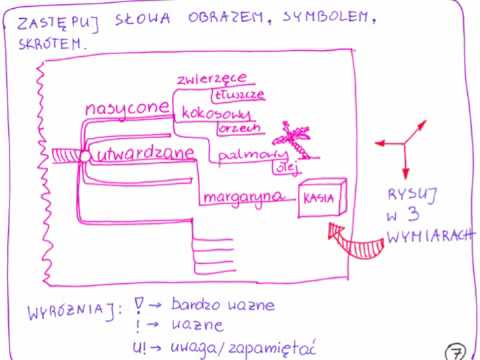 ZASTĘPUJ SŁOWA OBRAZEM, SYMBOLEM,
SKRÓTEM.
zwierzęce
tłuszcze
nasycone
kokosowy
orzech
utwardzane
palmowy
olej
margaryna
KASIA
RYSUJ
W 3
WYMIARACH
WYRÓŻNIAJ: ! → bardzo ważne
! → ważne
u! → uwaga/zapamiętać
7